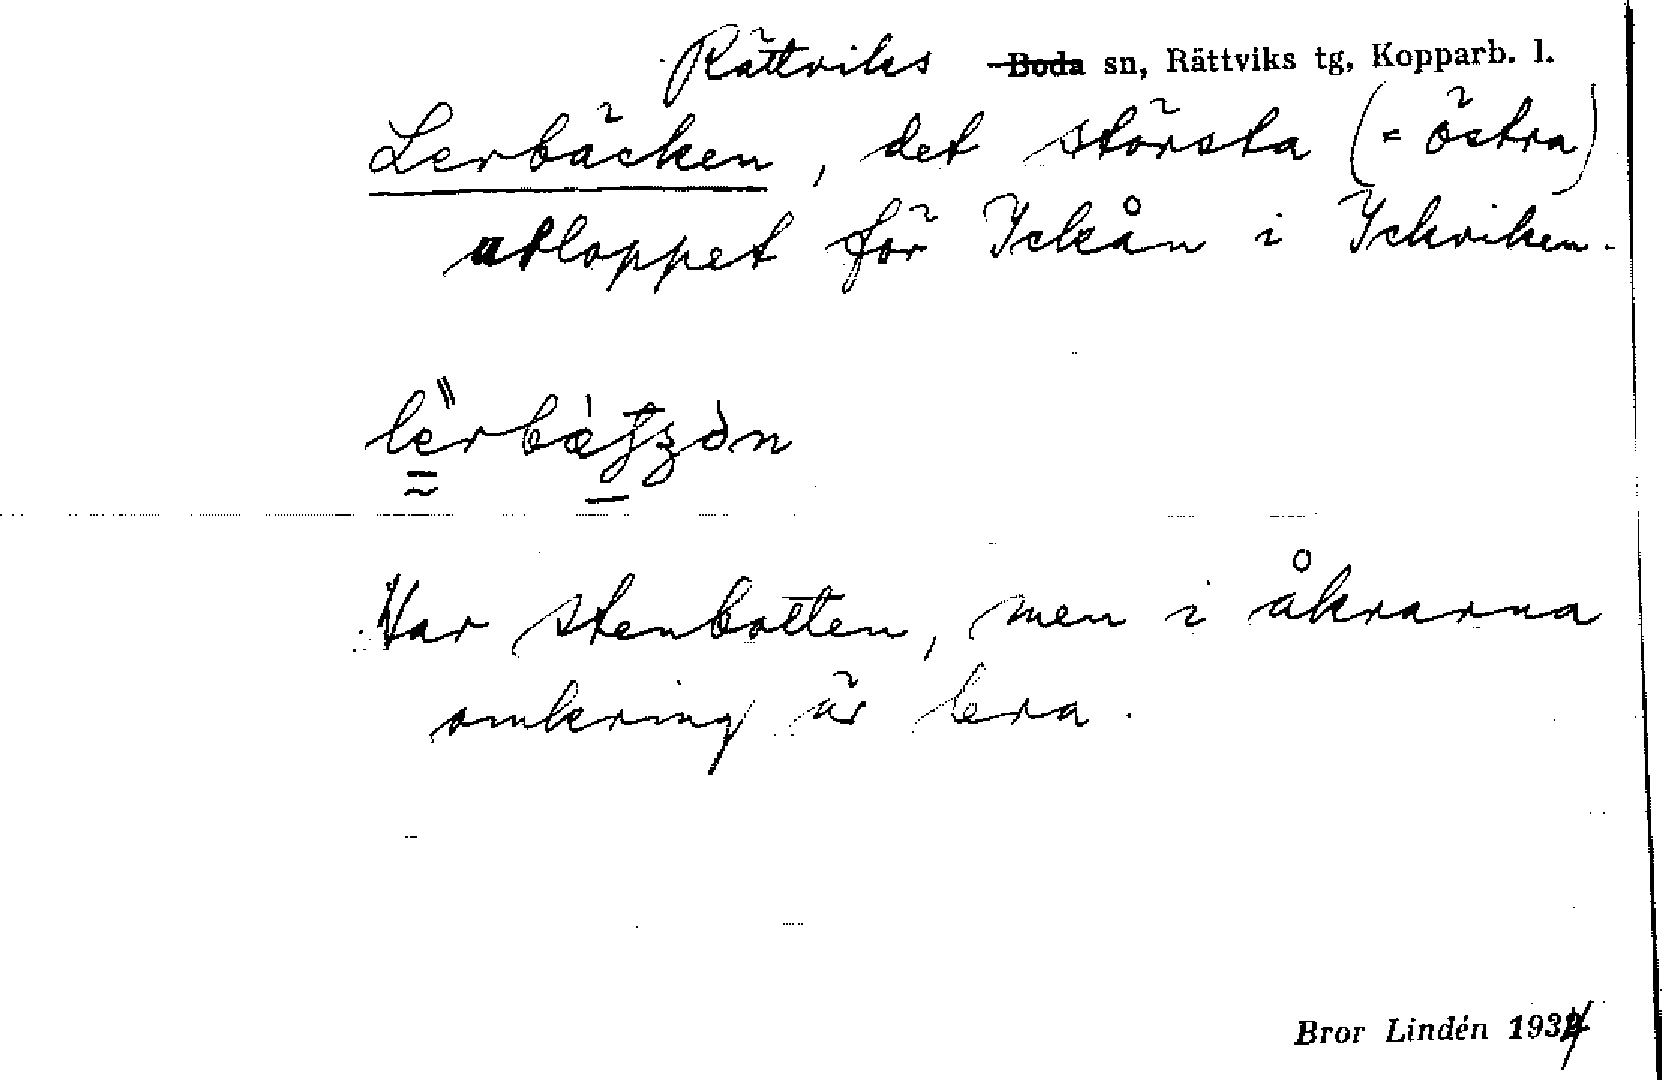 Rättviks Boda sn, Rättviks tg, Kopparb. l.
Lerbäcken, det största (= östra)
utloppet för Ickån i Ickviken.
Har stenbotten, men i åkrarna
omkring är lera.
Bror Lindén 1934